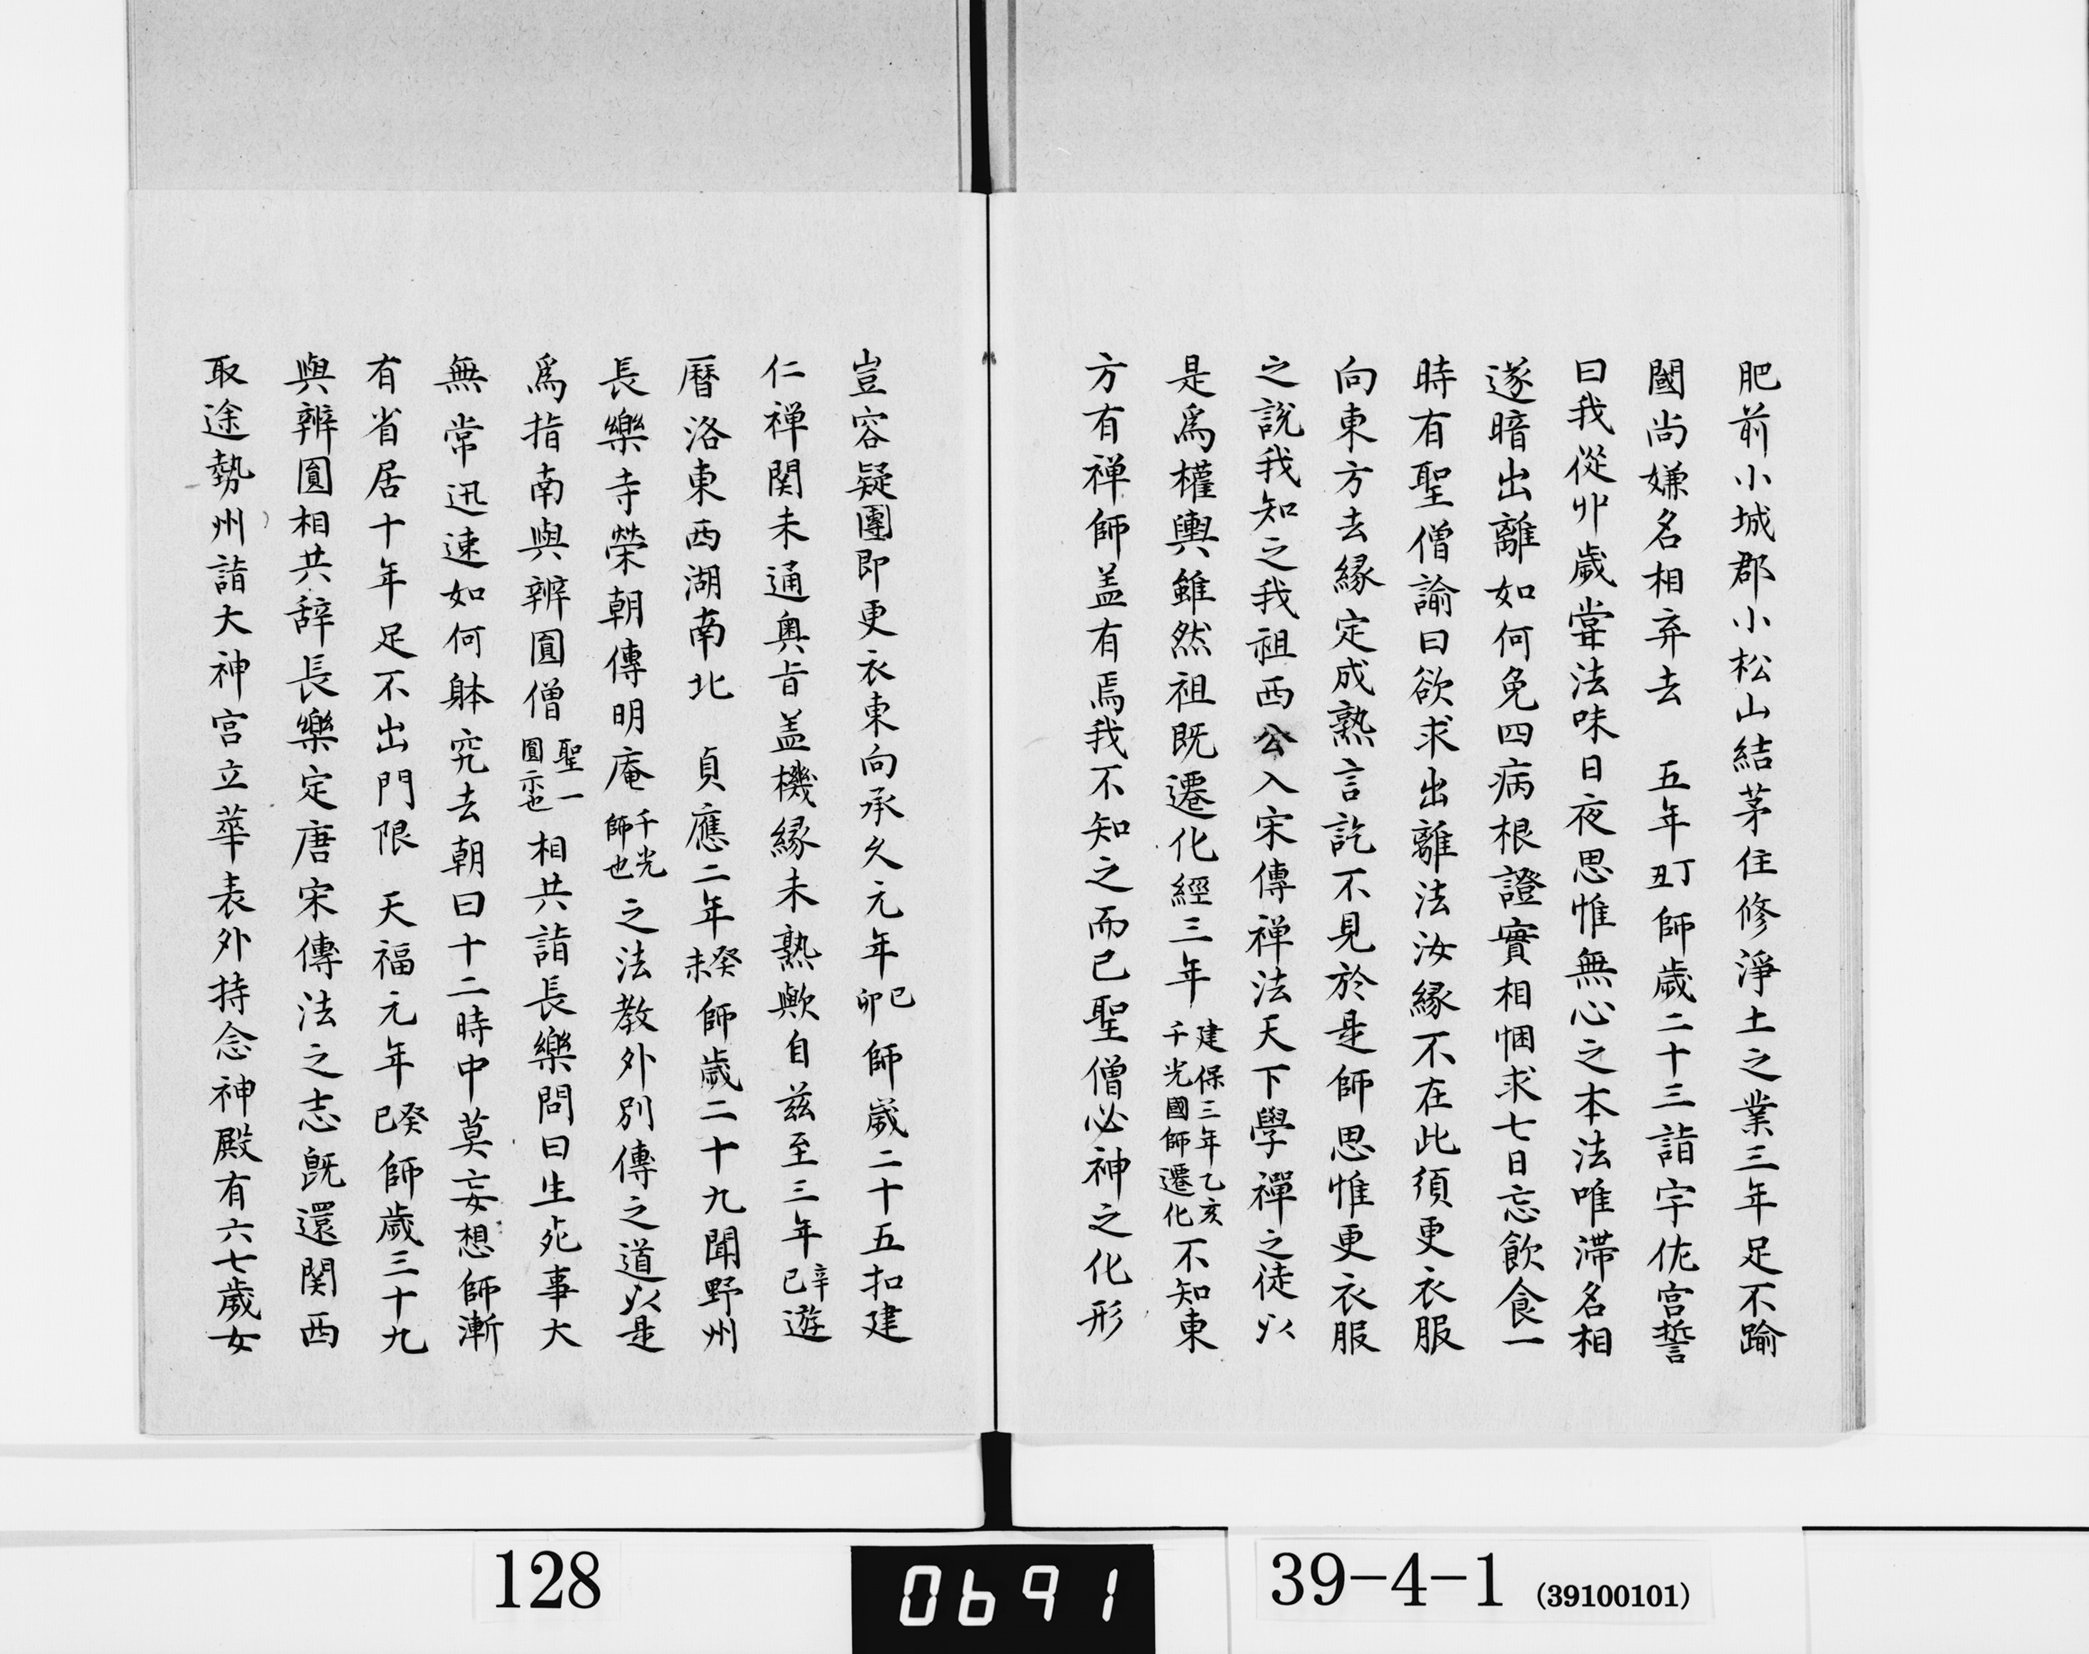 肥前小城郡小松山結茅住修淨土之業三年足不踰
國尚嫌名相弃去　五年丁丑師歳二十三詣宇佐宮誓
曰我從丱歳嘗法味日夜思惟無心之本法唯滯名相
遂暗出離如何免四病根證實相悃求七日忘飲食一
時有聖僧諭曰欲求出離法汝縁不在此須更衣服
向東方去縁定成熟言訖不見於是師思惟更衣服
之説我知之我祖西公入宋傳禅法天下學禪之徒以
是爲權輿雖然祖既遷化經三年建保三年乙亥千光國師遷化不知東
方有禅師盖有焉我不知之而已聖僧必神之化形
豈容疑團即更衣東向承久元年己卯師歳二十五扣建
仁禅関未通奥旨盖機縁未熟歟自兹至三年辛巳遊
暦洛東西湖南北　貞應二年癸未師歳二十九聞野州
長樂寺榮朝傳明庵千光師也之法教外別傳之道以是
爲指南與辨圓僧聖一圓尓也相共詣長樂問曰生死事大
無常迅速如何躰究去朝曰十二時中莫妄想師漸
有省居十年足不出門限　天福元年癸巳師歳三十九
與辨圓相共辞長樂定唐宋傳法之志既還関西
取途勢州詣大神宮立華表外持念神殿有六七歳女
128
0691
39-4-1 (39100101)